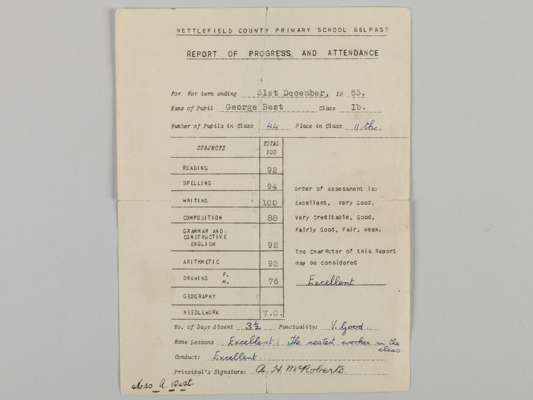 NETTLEFIELD COUNTY PRIMARY SCHOOL BELFAST
REPORT OF PROGRESS AND ATTENDANCE
For term ending 31st December, 19 53.
Name of Pupil George Best Class Ib.
Number of Pupils in Class 44 Place in Class 11th.
SUBJECTS TOTAL 100
READING 92
SPELLING 94
WRITING 100
COMPOSITION 88
GRAMMAR AND CONSTRUCTIVE ENGLISH 92
ARITHMETIC 92
DRAWING F. M. 76
GEOGRAPHY
NEEDLEWORK V.G.
Order of Assessment is:
Excellent, Very Good,
Very Creditable, Good,
Fairly Good, Fair, Weak.
The Character of this Report
may be considered
Excellent
No. of Days Absent 3½ Punctuality: V. Good
Home Lessons Excellent: The neatest worker in the class
Conduct: Excellent
Principal's Signature: A. H. McRoberts
Mrs A. Best.